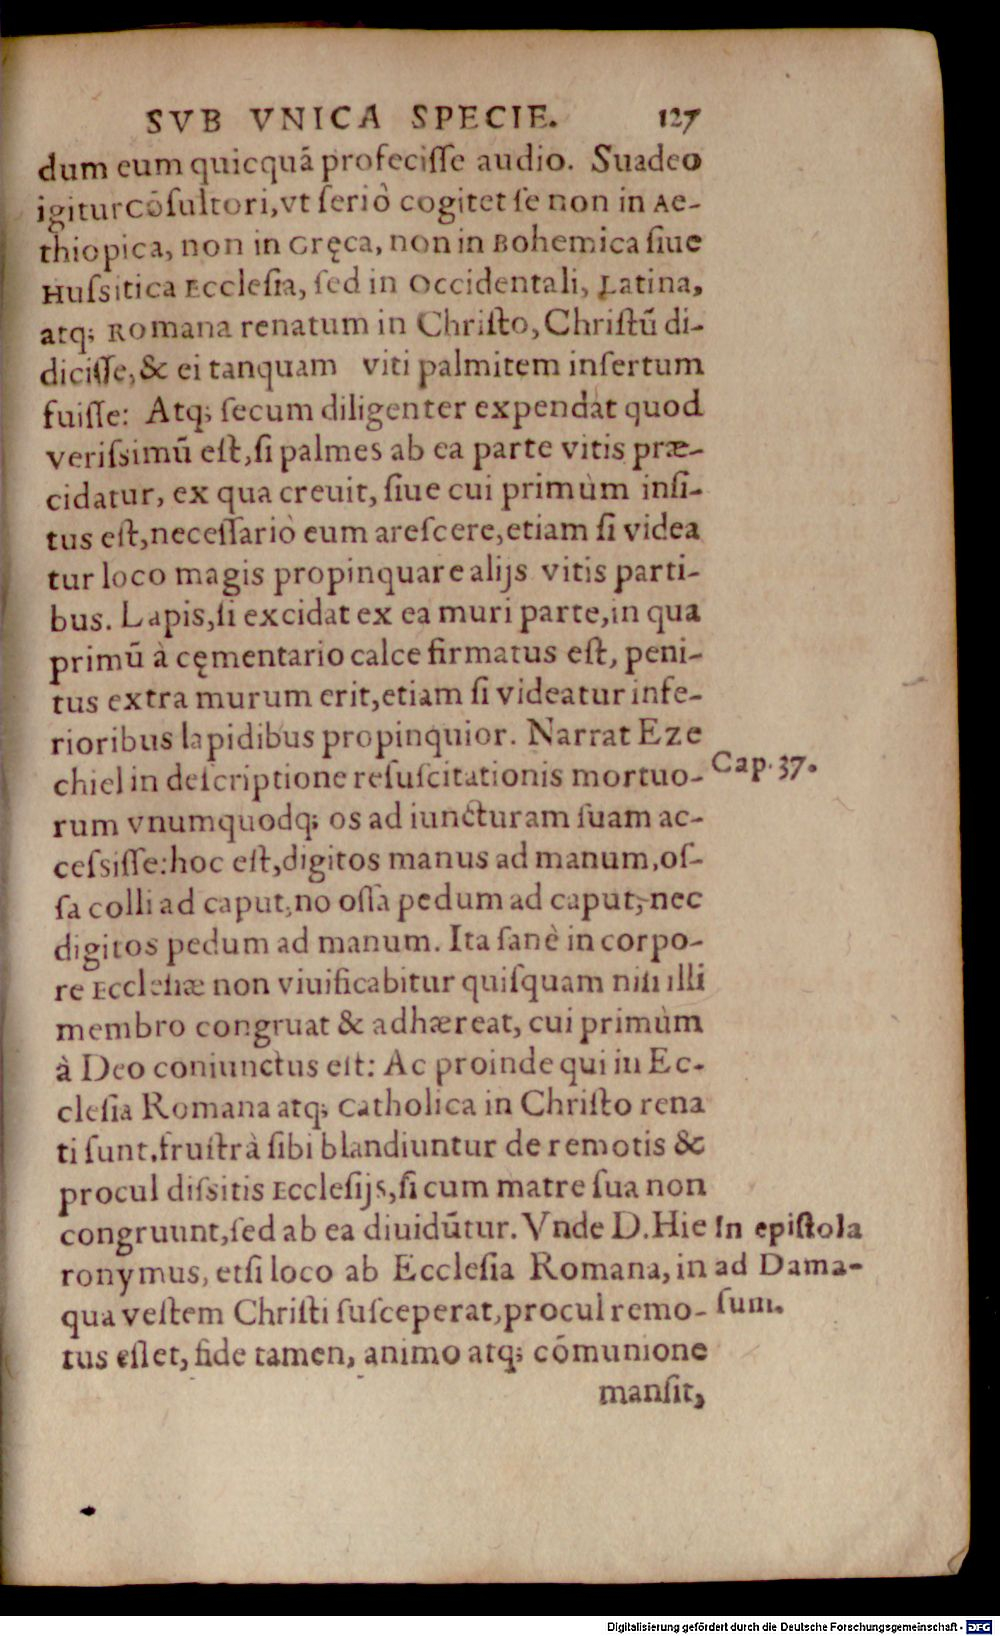 SVB VNICA SPECIE. 127
dum eum quicquã profecisse audio. Suadeo
igitur cõsultori, vt seriò cogitet se non in Ae-
thiopica, non in Gręca, non in Bohemica siue
Hussitica Ecclesia, sed in Occidentali, Latina,
atq; Romana renatum in Christo, Christũ di-
dicisse, & ei tanquam viti palmitem insertum
fuisse: Atq; secum diligenter expendat quod
verissimũ est, si palmes ab ea parte vitis præ-
cidatur, ex qua creuit, siue cui primùm insi-
tus est, necessariò eum arescere, etiam si videa
tur loco magis propinquare alijs vitis parti-
bus. Lapis, si excidat ex ea muri parte, in qua
primũ à cęmentario calce firmatus est, peni-
tus extra murum erit, etiam si videatur infe-
rioribus lapidibus propinquior. Narrat Eze
chiel in descriptione resuscitationis mortuo-
Cap. 37.
rum vnumquodq; os ad iuncturam suam ac-
cessisse: hoc est, digitos manus ad manum, os-
sa colli ad caput, no ossa pedum ad caput, nec
digitos pedum ad manum. Ita sanè in corpo-
re Ecclesiæ non viuificabitur quisquam nisi illi
membro congruat & adhæreat, cui primùm
à Deo coniunctus est: Ac proinde qui in Ec-
clesia Romana atq; Catholica in Christo rena
ti sunt, frustrà sibi blandiuntur de remotis &
procul dissitis Ecclesijs, si cum matre sua non
congruunt, sed ab ea diuidũtur. Vnde D. Hie
ronymus, etsi loco ab Ecclesia Romana, in
qua vestem Christi susceperat, procul remo-
tus esset, fide tamen, animo atq; cõmunione
In epistola
ad Dama-
sum.
mansit,
Digitalisierung gefördert durch die Deutsche Forschungsgemeinschaft - DFG